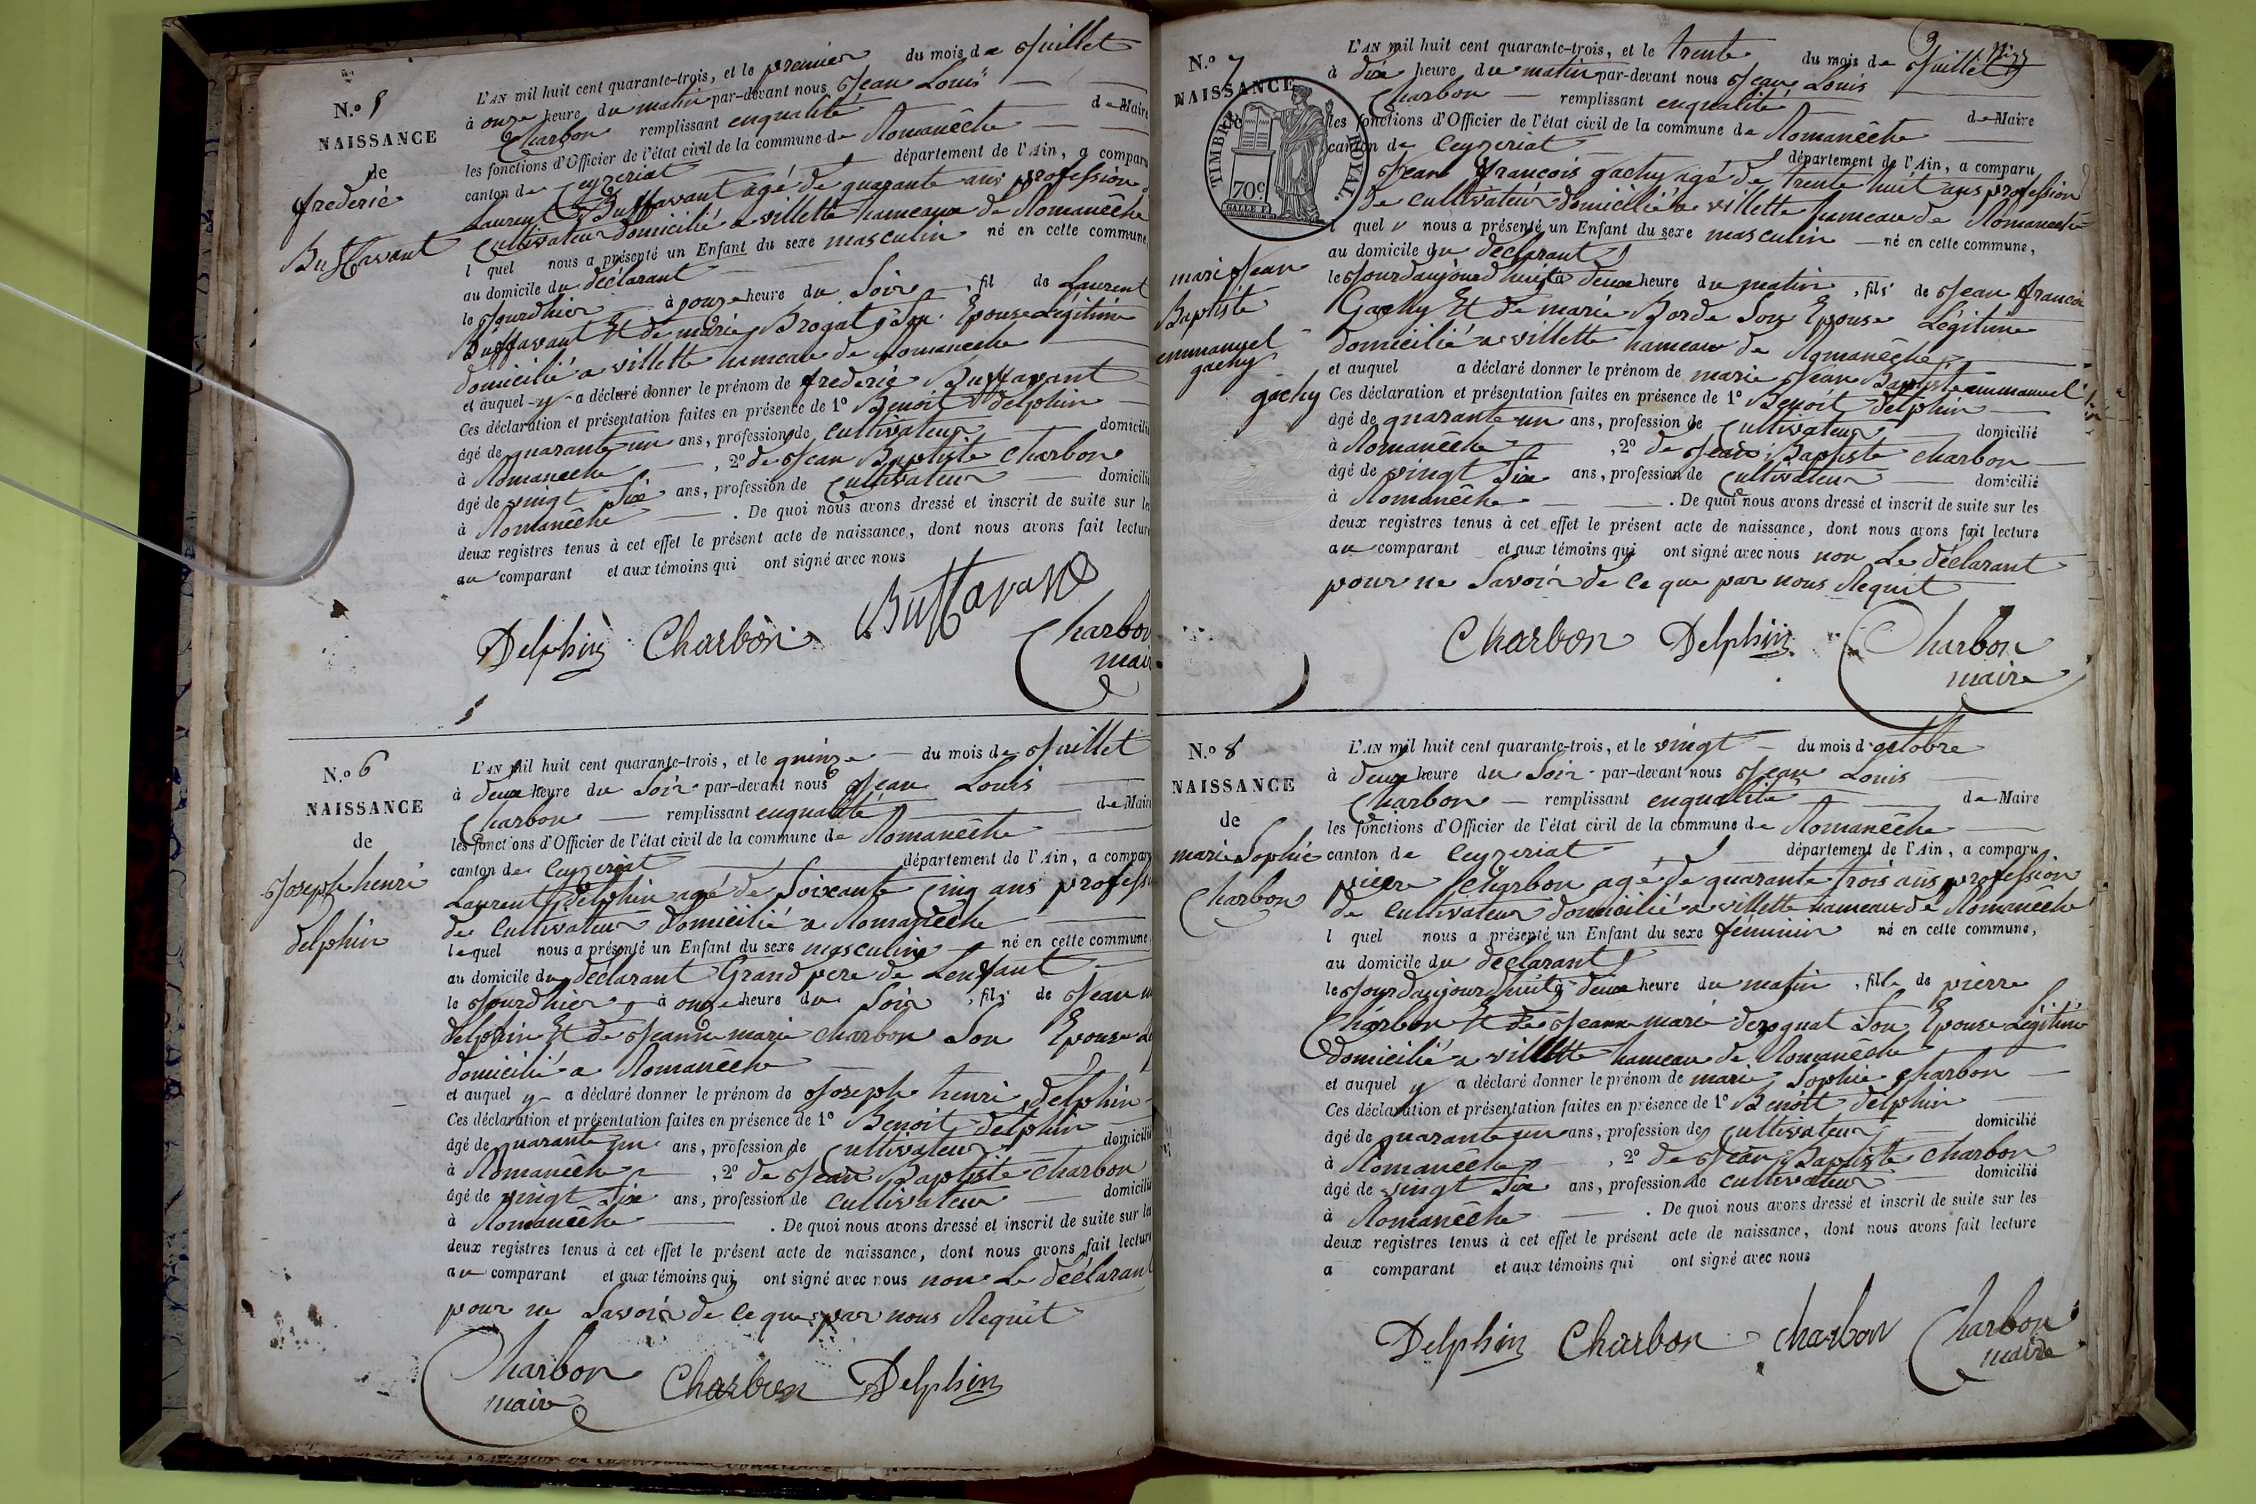 N.o 5
NAISSANCE
de
frederic
Buffavant
L'AN mil huit cent quarante-trois, et le premier du mois de Juillet
à onze heure du matin par-devant nous Jean Louis
Charbon remplissant enqualité de Maire
les fonctions d'Officier de l'état civil de la commune de Romanêche
canton de Ceyzeriat département de l'Ain, a comparu
Laurent Buffavant agé de quarante ans profession
Cultivateur domicilié a villette hameaux de Romanêche
l quel nous a présenté un Enfant du sexe masculin né en cette commune,
au domicile du déclarant
le Jourdhier à onze heure du Soir, fil de Laurent
Buffavant Et de marie Brogat Son Epouse Légitime
domicilié a villette hameau de Romaneche
et auquel y a déclaré donner le prénom de frederic Buffavant
Ces déclaration et présentation faites en présence de 1o Benoit delphin
âgé de quarante un ans, profession de Cultivateur domicilié
à Romaneche, 2o de Jean Baptiste Charbon
âgé de vingt Six ans, profession de Cultivateur domicilié
à Romanêche. De quoi nous avons dressé et inscrit de suite sur les
deux registres tenus à cet effet le présent acte de naissance, dont nous avons fait lecture
au comparant et aux témoins qui ont signé avec nous
Delphin Charbon Buffavant
Charbon
maire
N.o 6
NAISSANCE
de
Joseph henri
delphin
L'AN mil huit cent quarante-trois, et le quinze du mois de Juillet
à deux heure du Soir par-devant nous Jean Louis
Charbon remplissant enqualité de Maire
les fonctions d'Officier de l'état civil de la commune de Romanêche
canton de Ceyzeriat département de l'Ain, a comparu
Laurent delphin agé de Soixante Cinq ans professi
de Cultivateur domicilié a Romanêche
lequel nous a présenté un Enfant du sexe masculin né en cette commune,
au domicile du déclarant Grand pere de Lenfant
le Jourdhier à onze heure du Soir, fils de Jean m
delphin Et de Jeanne marie Charbon Son Epouse Le
domicilié a Romanêche
et auquel y a déclaré donner le prénom de Joseph henri delphin
Ces déclaration et présentation faites en présence de 1o Benoit delphin
âgé de quarante un ans, profession de Cultivateur domicilié
à Romanêche, 2o de Jean Baptiste Charbon
âgé de vingt Six ans, profession de Cultivateur domicilié
à Romanêche. De quoi nous avons dressé et inscrit de suite sur les
deux registres tenus à cet effet le présent acte de naissance, dont nous avons fait lecture
au comparant et aux témoins qui ont signé avec nous non Le déclarant
pour ne Savoir de ce que par nous Requit
Charbon Charbon Delphin
maire
N.o 7
NAISSANCE
TIMBRE ROYAL.
70c
marie Jean
Baptiste
emmanuel
gachy
gachy
L'AN mil huit cent quarante-trois, et le trente du mois de Juillet
à dix heure du matin par-devant nous Jean Louis
Charbon remplissant enqualité de Maire
les fonctions d'Officier de l'état civil de la commune de Romanêche
canton de Ceyzeriat département de l'Ain, a comparu
Jean francois gachy agé de trente huit ans profession
de cultivateur domicilié a villette hameau de Romaneche
l quel nous a présenté un Enfant du sexe masculin né en cette commune,
au domicile du déclarant
le Jourdaujourdhuit a deux heure du matin, fils de Jean francoi
Gachy Et de marie Borde Son Epouse Légitime
domicilié a villette hameau de Romanêche
et auquel a déclaré donner le prénom de marie Jean Baptiste emmanuel
Ces déclaration et présentation faites en présence de 1o Benoit delphin
âgé de quarante un ans, profession de Cultivateur domicilié
à Romanêche, 2o de Jean Baptiste charbon
âgé de vingt Six ans, profession de Cultivateur domicilié
à Romanêche. De quoi nous avons dressé et inscrit de suite sur les
deux registres tenus à cet effet le présent acte de naissance, dont nous avons fait lecture
au comparant et aux témoins qui ont signé avec nous non Le déclarant
pour ne Savoir de ce que par nous Requit
Charbon Delphin Charbon
maire
N.o 8
NAISSANCE
de
marie Sophie
Charbon
L'AN mil huit cent quarante-trois, et le vingt du mois d'octobre
à deux heure du Soir par-devant nous Jean Louis
Charbon remplissant enqualité de Maire
les fonctions d'Officier de l'état civil de la commune de Romanêche
canton de Ceyzeriat département de l'Ain, a comparu
pierre Charbon agé de quarante trois ans profession
de Cultivateur domicilié a villette hameau de Romanêche
l quel nous a présenté un Enfant du sexe féminin né en cette commune,
au domicile du déclarant
le Jourdaujourdhuit à deux heure du matin, fille de pierre
Charbon Et de Jeanne marie deroguat Son Epouse Légitime
domicilié a villette hameau de Romanêche
et auquel y a déclaré donner le prénom de marie Sophie charbon
Ces déclaration et présentation faites en présence de 1o Benoit delphin
âgé de quarante un ans, profession de Cultivateur domicilié
à Romanêche, 2o de Jean Baptiste Charbon
âgé de vingt Six ans, profession de Cultivateur domicilié
à Romanêche. De quoi nous avons dressé et inscrit de suite sur les
deux registres tenus à cet effet le présent acte de naissance, dont nous avons fait lecture
a comparant et aux témoins qui ont signé avec nous
Delphin Charbon charbon Charbon
maire